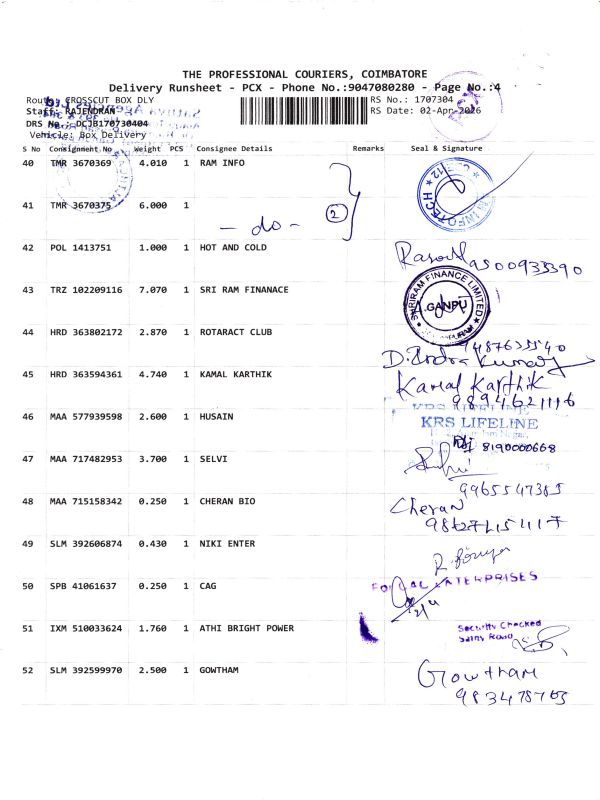 THE PROFESSIONAL COURIERS, COIMBATORE
Delivery Runsheet - PCX - Phone No.:9047080280 - Page No.:4
Route: CROSSCUT BOX DLY
RS No.: 1707304
Staff: RAJENDRAN
RS Date: 02-Apr-2026
DRS No. DCJB170730404
Vehicle: Box Delivery
S No Consignment No Weight PCS Consignee Details Remarks Seal & Signature
40 TMR 3670369 4.010 1 RAM INFO
INFOTECH
41 TMR 3670375 6.000 1
- do - 2
42 POL 1413751 1.000 1 HOT AND COLD
9500933390
43 TRZ 102209116 7.070 1 SRI RAM FINANACE
SHRIRAM FINANCE LIMITED
GANPU
44 HRD 363802172 2.870 1 ROTARACT CLUB
9487635540
D. Indra Kumar
45 HRD 363594361 4.740 1 KAMAL KARTHIK
Kamal Karthik
9894621116
46 MAA 577939598 2.600 1 HUSAIN
KRS LIFELINE
KRS LIFELINE
8190000668
47 MAA 717482953 3.700 1 SELVI
9965547385
48 MAA 715158342 0.250 1 CHERAN BIO
Cheran
49 SLM 392606874 0.430 1 NIKI ENTER
50 SPB 41061637 0.250 1 CAG
ENTERPRISES
2/4
51 IXM 510033624 1.760 1 ATHI BRIGHT POWER
Security Checked
Road
52 SLM 392599970 2.500 1 GOWTHAM
Gowtham